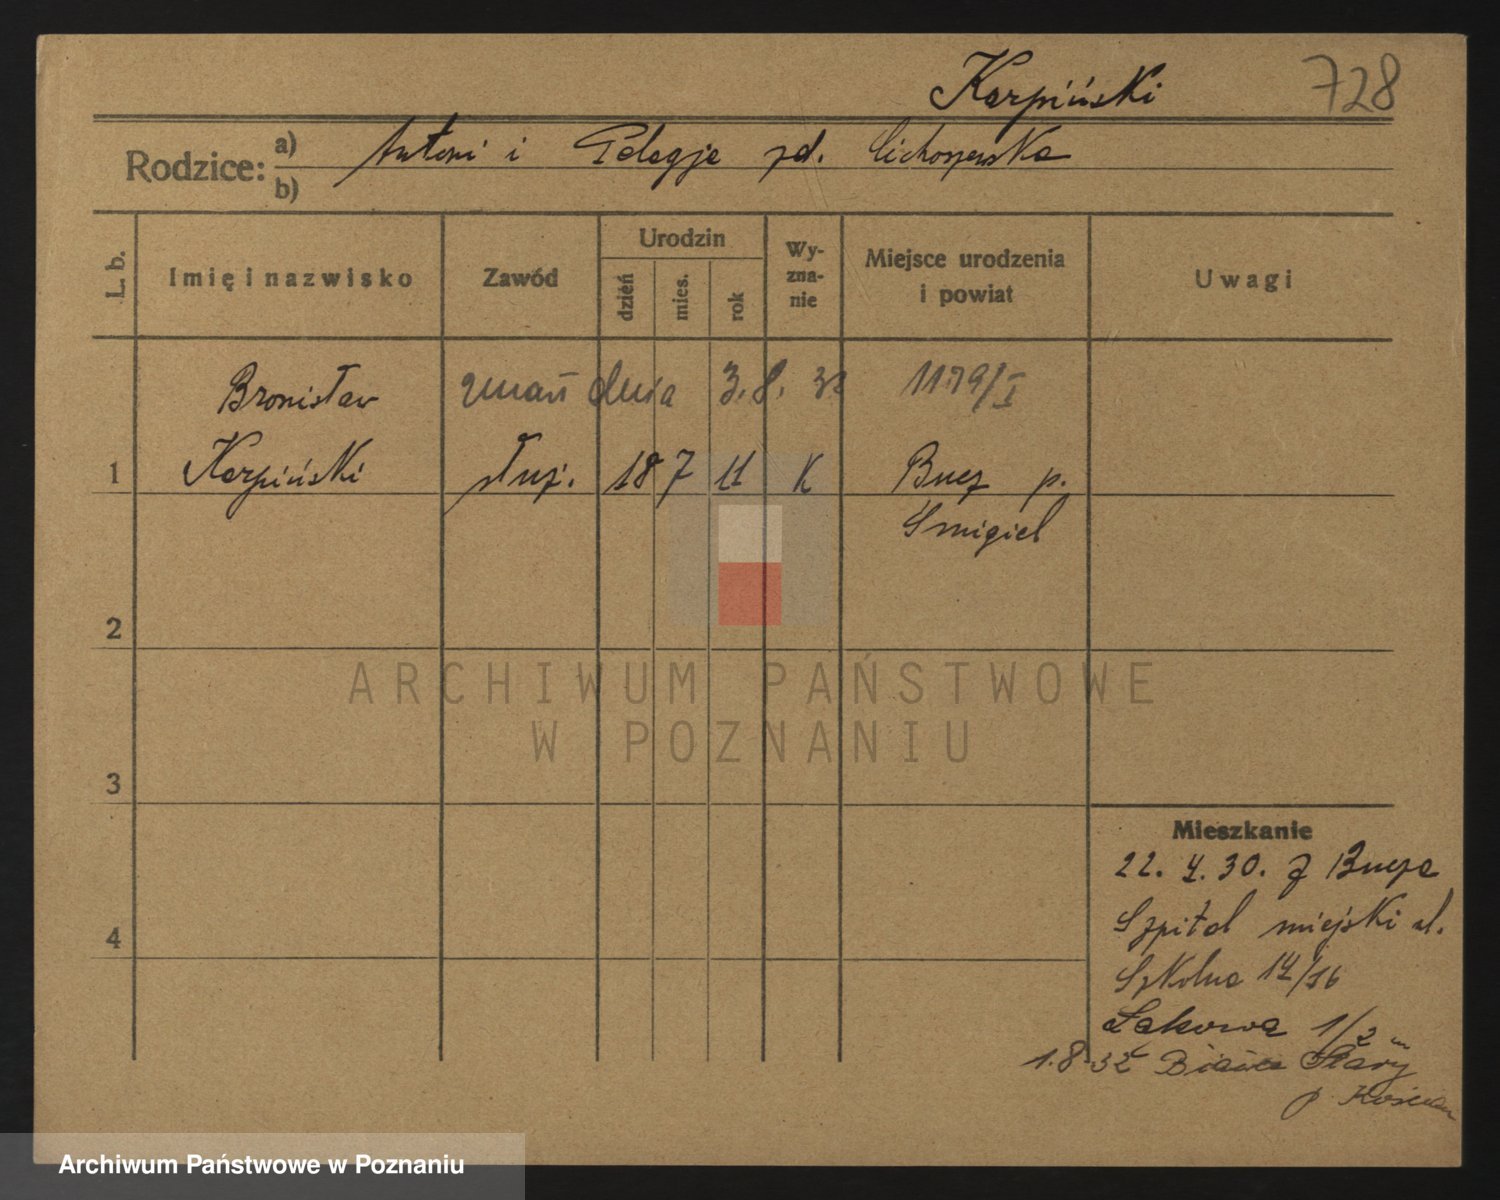 Karpiński 728
Rodzice: a) Antoni i Pelagja zd. Cichoszewska
b)
L. b. Imię i nazwisko Zawód Urodzin dzień mies. rok Wyznanie Miejsce urodzenia i powiat Uwagi
Bronisław zmarł dnia 3.8. 32 1179/I
1 Karpiński służ. 18 7 11 K Bucz p.
Śmigiel
2
3
4
Mieszkanie
22. 4. 30. z Bucza
Szpital miejski ul.
Szkolna 14/16
Łąkowa 1/2
1.8.32 Stary
p. Kościan
ARCHIWUM PAŃSTWOWE
W POZNANIU
Archiwum Państwowe w Poznaniu